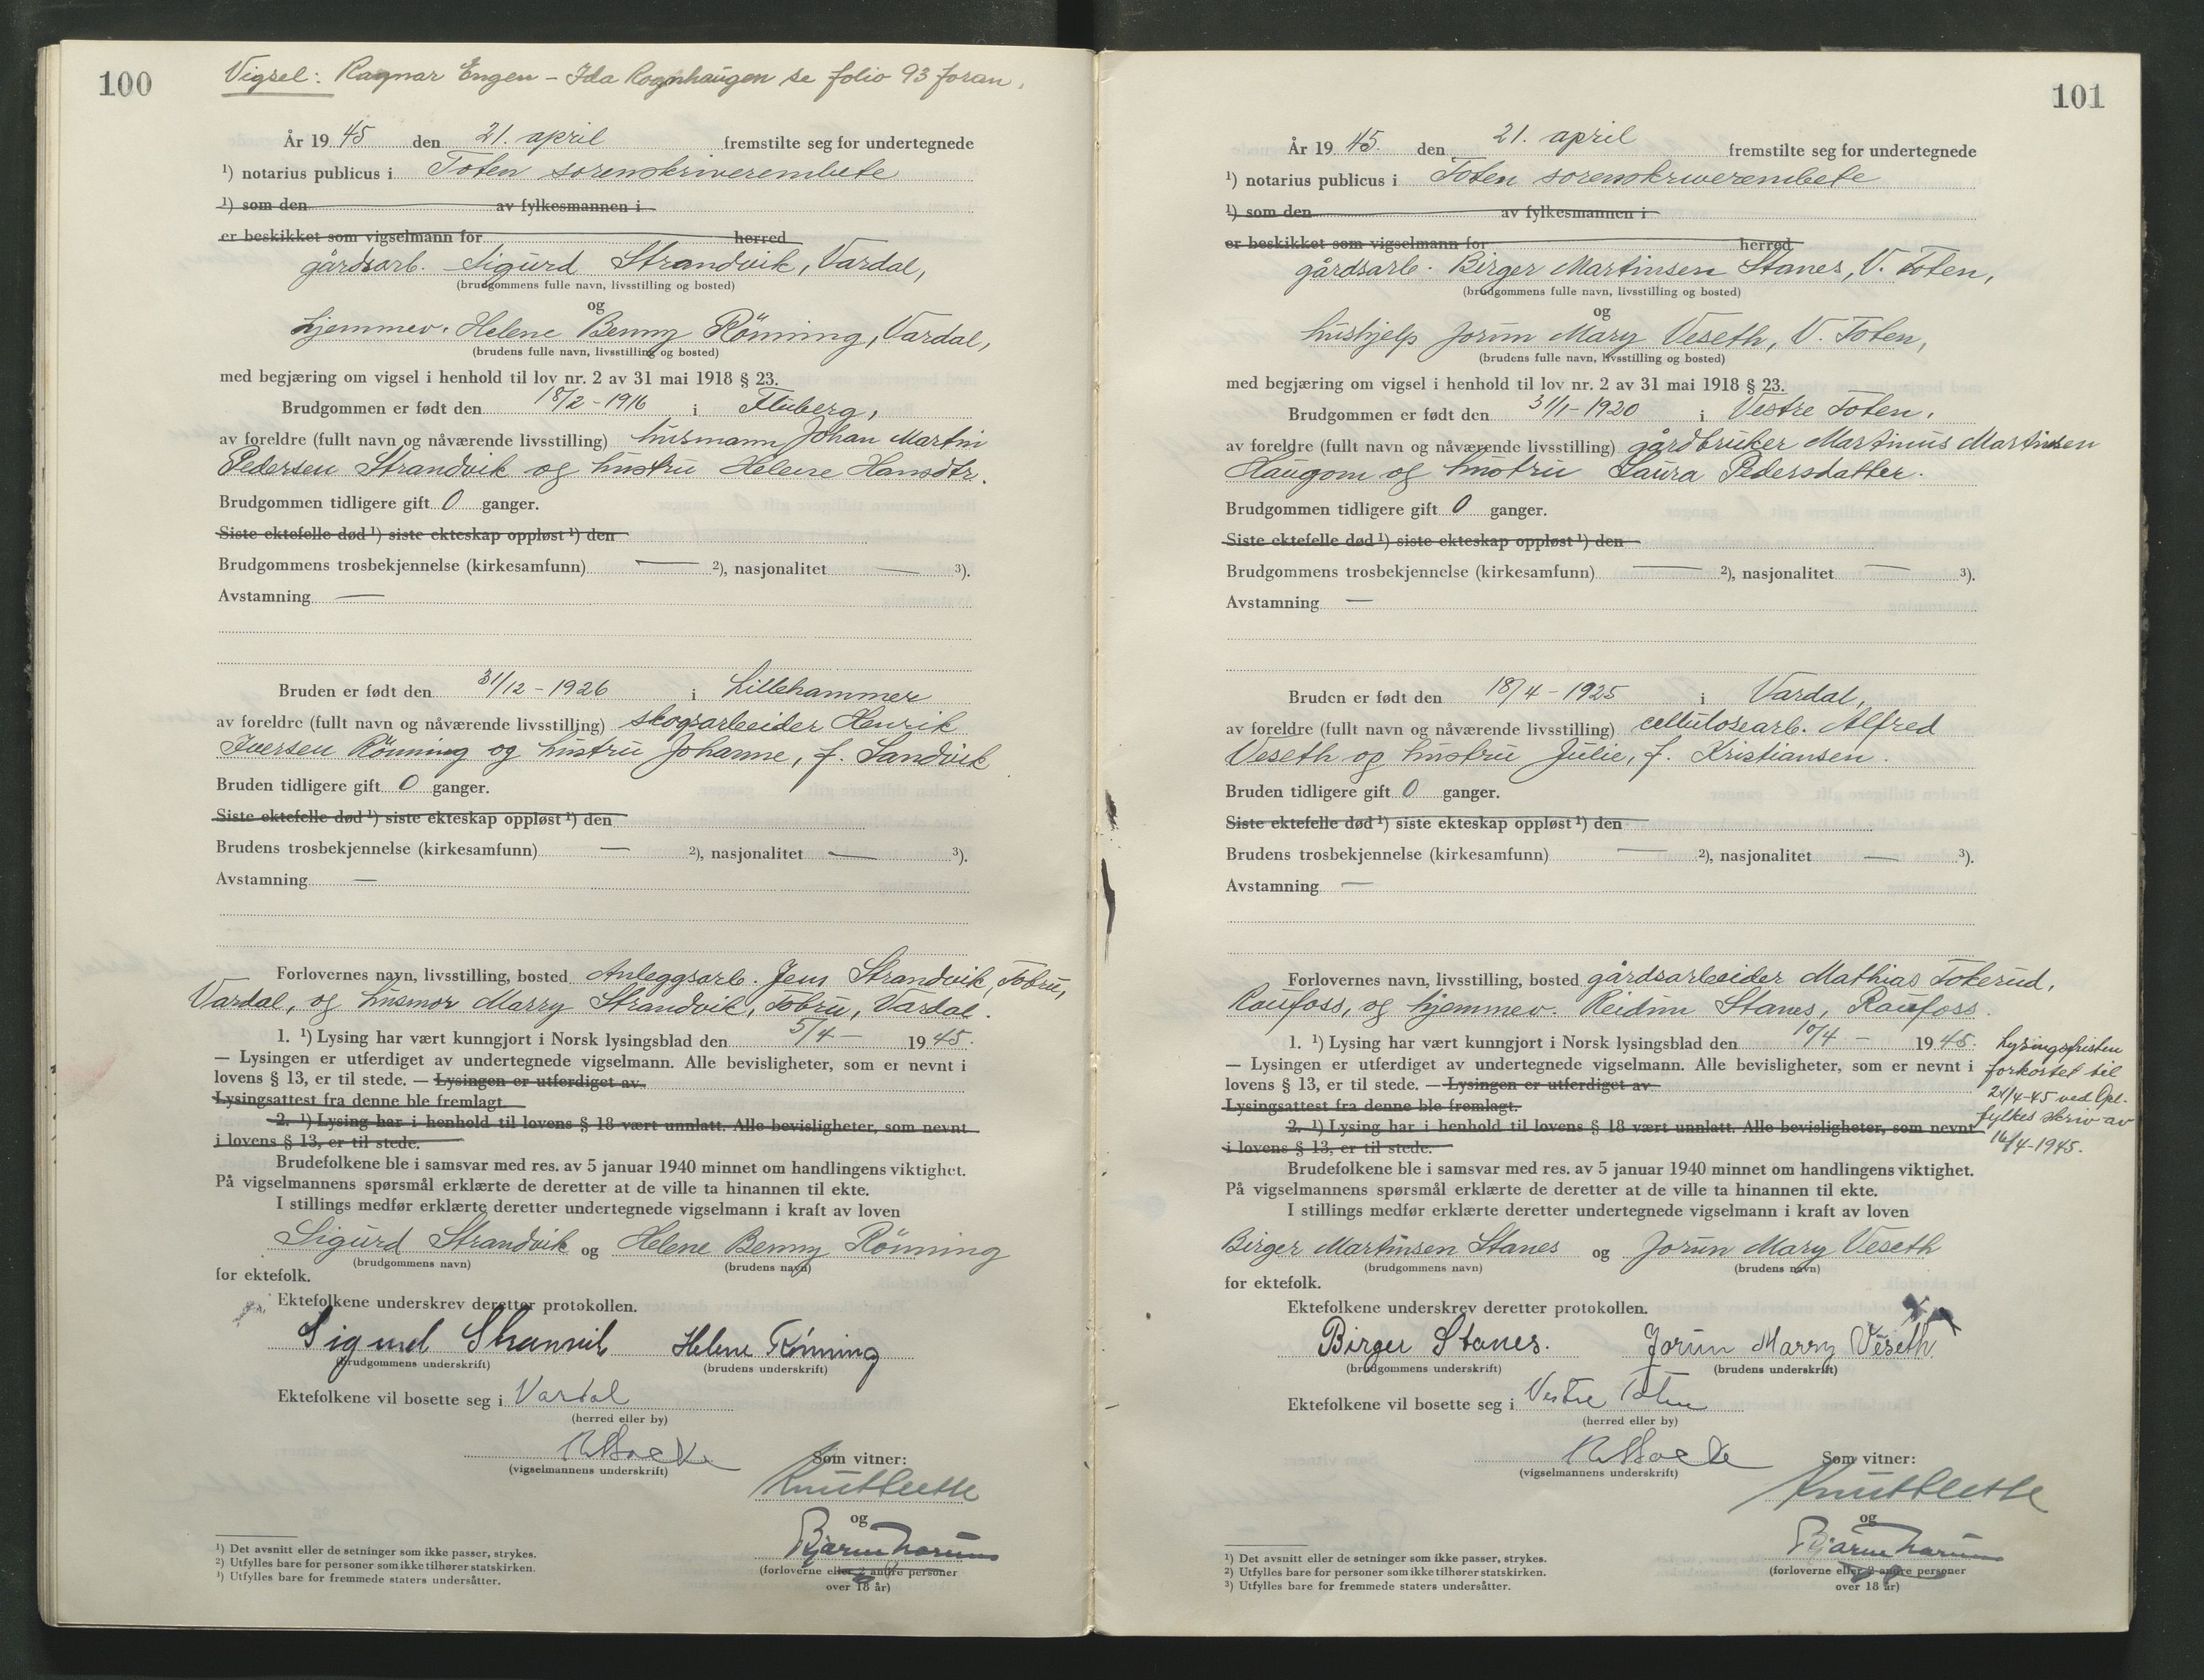 100
Vigsel: Ragnar Engen - Ida Rognhaugen se folio 93 foran.
År 19 45 den 21. april fremstilte seg for undertegnede
¹) notarius publicus i Toten sorenskriverembete
¹) som den av fylkesmannen i
er beskikket som vigselmann for herred
gårdsarb. Sigurd Strandvik, Vardal,
(brudgommens fulle navn, livsstilling og bosted)
og
hjemmev. Helene Benny Rönning, Vardal,
(brudens fulle navn, livsstilling og bosted)
med begjæring om vigsel i henhold til lov nr. 2 av 31 mai 1918 § 23.
Brudgommen er født den 18/2 - 1916 i Fluberg,
av foreldre (fullt navn og nåværende livsstilling) husmann Johan Martin
Pedersen Strandvik og hustru Helene Hansdtr.
Brudgommen tidligere gift 0 ganger.
Siste ektefelle død ¹) siste ekteskap oppløst ¹) den
Brudgommens trosbekjennelse (kirkesamfunn) — ²), nasjonalitet — ³).
Avstamning —
Bruden er født den 31/12 - 1926 i Lillehammer
av foreldre (fullt navn og nåværende livsstilling) skogsarbeider Henrik
Iversen Rönning og hustru Johanne, f. Sandvik
Bruden tidligere gift 0 ganger.
Siste ektefelle død ¹) siste ekteskap oppløst ¹) den
Brudens trosbekjennelse (kirkesamfunn) — ²), nasjonalitet — ³).
Avstamning —
Forlovernes navn, livsstilling, bosted Anleggsarb. Jens Strandvik, Tobru,
Vardal, og husmor Marry Strandvik, Tobru, Vardal.
1. ¹) Lysing har vært kunngjort i Norsk lysingsblad den 5/4 — 19 45.
— Lysingen er utferdiget av undertegnede vigselmann. Alle bevisligheter, som er nevnt i
lovens § 13, er til stede. — Lysingen er utferdiget av
Lysingsattest fra denne ble fremlagt.
2. ¹) Lysing har i henhold til lovens § 18 vært unnlatt. Alle bevisligheter, som nevnt
i lovens § 13, er til stede.
Brudefolkene ble i samsvar med res. av 5 januar 1940 minnet om handlingens viktighet.
På vigselmannens spørsmål erklærte de deretter at de ville ta hinannen til ekte.
I stillings medfør erklærte deretter undertegnede vigselmann i kraft av loven
Sigurd Strandvik og Helene Benny Rönning
(brudgommens navn) (brudens navn)
for ektefolk.
Ektefolkene underskrev deretter protokollen.
Sigurd Strannvik Helene Rønning
(brudgommens underskrift) (brudens underskrift)
Ektefolkene vil bosette seg i Vardal
(herred eller by)
(vigselmannens underskrift)
Som vitner:
og
(forloverne eller 2 andre personer
over 18 år)
¹) Det avsnitt eller de setninger som ikke passer, strykes.
²) Utfylles bare for personer som ikke tilhører statskirken.
³) Utfylles bare for fremmede staters undersåtter.
101
År 19 45. den 21. april fremstilte seg for undertegnede
¹) notarius publicus i Toten sorenskriverembete
¹) som den av fylkesmannen i
er beskikket som vigselmann for herred
gårdsarb. Birger Martinsen Stanes, V. Toten,
(brudgommens fulle navn, livsstilling og bosted)
og
hushjelp Jorun Mary Veseth, V. Toten,
(brudens fulle navn, livsstilling og bosted)
med begjæring om vigsel i henhold til lov nr. 2 av 31 mai 1918 § 23.
Brudgommen er født den 31/1 - 1920 i Vestre Toten,
av foreldre (fullt navn og nåværende livsstilling) gårdbruker Martinus Martinsen
Haugom og hustru Laura Pedersdatter.
Brudgommen tidligere gift 0 ganger.
Siste ektefelle død ¹) siste ekteskap oppløst ¹) den
Brudgommens trosbekjennelse (kirkesamfunn) — ²), nasjonalitet — ³).
Avstamning —
Bruden er født den 18/4 - 1925 i Vardal,
av foreldre (fullt navn og nåværende livsstilling) cellulosearb. Alfred
Veseth og hustru Julie, f. Kristiansen.
Bruden tidligere gift 0 ganger.
Siste ektefelle død ¹) siste ekteskap oppløst ¹) den
Brudens trosbekjennelse (kirkesamfunn) — ²), nasjonalitet — ³).
Avstamning —
Forlovernes navn, livsstilling, bosted gårdsarbeider Mathias Tokerud,
Raufoss, og hjemmev. Reidun Stanes, Raufoss.
1. ¹) Lysing har vært kunngjort i Norsk lysingsblad den 10/4 — 19 45.
— Lysingen er utferdiget av undertegnede vigselmann. Alle bevisligheter, som er nevnt i
lovens § 13, er til stede. — Lysingen er utferdiget av
Lysingsattest fra denne ble fremlagt.
2. ¹) Lysing har i henhold til lovens § 18 vært unnlatt. Alle bevisligheter, som nevnt
i lovens § 13, er til stede.
Lysingsfristen
forkortet til
21/4-45 ved Opl.
fylkes skriv av
16/4-1945.
Brudefolkene ble i samsvar med res. av 5 januar 1940 minnet om handlingens viktighet.
På vigselmannens spørsmål erklærte de deretter at de ville ta hinannen til ekte.
I stillings medfør erklærte deretter undertegnede vigselmann i kraft av loven
Birger Martinsen Stanes og Jorun Mary Veseth
(brudgommens navn) (brudens navn)
for ektefolk.
Ektefolkene underskrev deretter protokollen.
Birger Stanes. Jorun Marry Veseth
(brudgommens underskrift) (brudens underskrift)
Ektefolkene vil bosette seg i Vestre Toten
(herred eller by)
(vigselmannens underskrift)
Som vitner:
og
(forloverne eller 2 andre personer
over 18 år)
¹) Det avsnitt eller de setninger som ikke passer, strykes.
²) Utfylles bare for personer som ikke tilhører statskirken.
³) Utfylles bare for fremmede staters undersåtter.